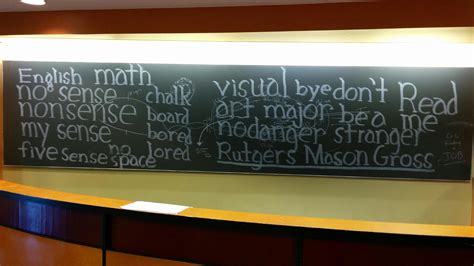 English math
no sense chalk
nonsense board
my sense bored
five sense no lored
space
visual bye don't Read
art major be a me
no danger stranger
Rutgers Mason Gross